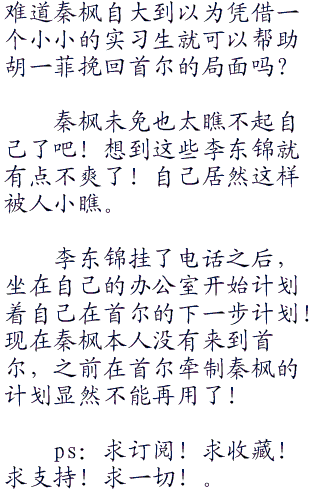 难道秦枫自大到以为凭借一
个小小的实习生就可以帮助
胡一菲挽回首尔的局面吗？
秦枫未免也太瞧不起自
己了吧！想到这些李东锦就
有点不爽了！自己居然这样
被人小瞧。
李东锦挂了电话之后，
坐在自己的办公室开始计划
着自己在首尔的下一步计划！
现在秦枫本人没有来到首
尔，之前在首尔牵制秦枫的
计划显然不能再用了！
ps：求订阅！求收藏！
求支持！求一切！。